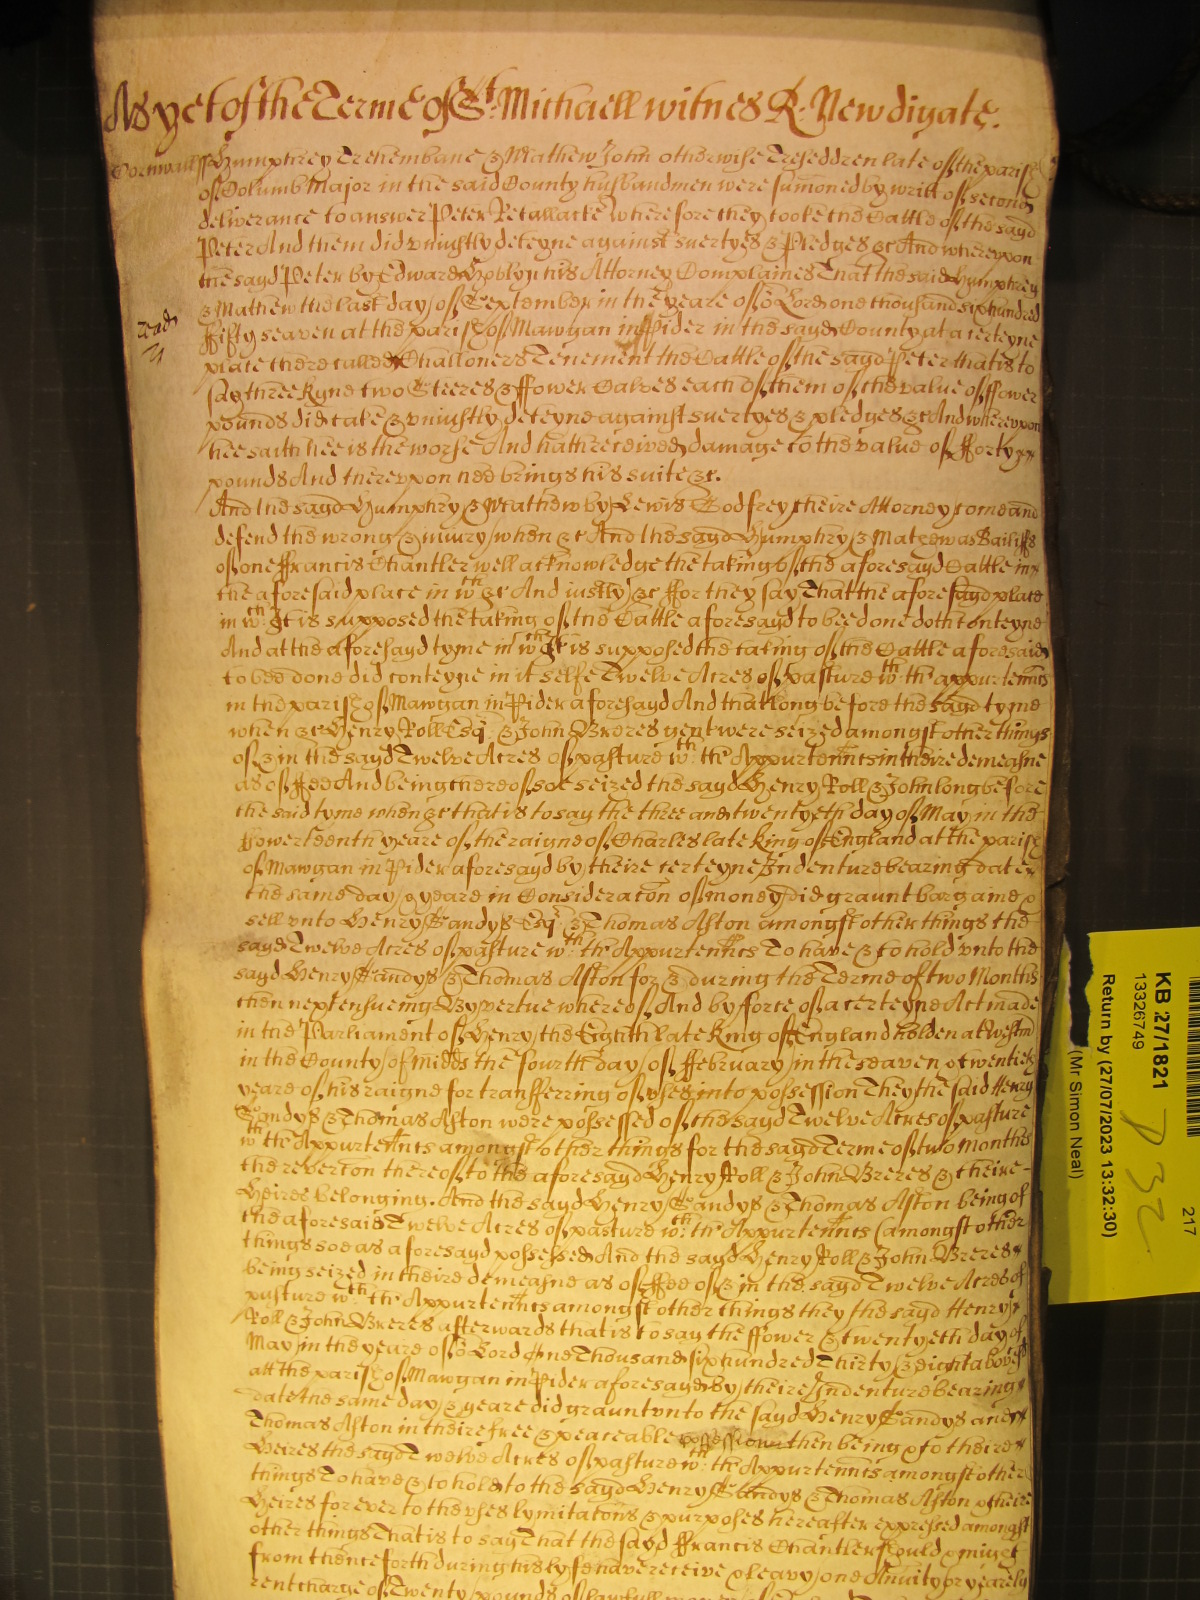 As yet of the Terme of St. Michaell witnes R: Newdigate.
Cornwall ss Humphrey Trehembane & Mathew John otherwise Treseddren late of the parish
of Columb Major in the said County husbandmen were sumoned by writt of second
deliverance to answer Peter Retallacke wherefore they tooke the Cattle of the sayd
Peter And them did vniustly deteyne against suertyes & Pledges &c And wherevpon
the sayd Peter by Edward Hoblyn his Attorney Complaines That the said Humphrey
& Mathew the last day of September in the yeare of or Lord one thousand six hundred
ffifty seaven at the parish of Mawgan in Pider in the sayd County at a certeyne
place there called Challoners Tenement the Cattle of the sayd Peter that is to
say three kyne two Steeres & ffower Calves each of them of the value of ffower
pounds did take & vniustly deteyne against suertyes & pledges &c And wherevpon
hee saith hee is the worse And hath received damage to the value of fforty
pounds And therevpon hee brings his suite &c.
And the sayd Humphry & Mathew by Lewis Godfrey theire Attorney come and
defend the wrong & iniury when &c And the sayd Humphry & Mathew as Bailiffs
of one ffrancis Chantler well acknowledge the taking of the aforesayd Cattle in
the aforesaid place in wth &c And iustly &c ffor they say That the aforesayd place
in wth: It is supposed the taking of the Cattle aforesayd to bee done doth conteyne
And at the aforesayd tyme in wth It is supposed the taking of the Cattle aforesaid
to bee done did conteyne in it selfe Twelve Acres of pasture wth: thappurtennts
in the parish of Mawgan in Pider aforesayd And that long before the sayd tyme
when &c Henry Roll Esqr & John Breres gent were seized amongst other things
of & in the sayd Twelve Acres of pasture wth: thAppurtennts in theire demeasne
as of ffee And being thereof soe seized the sayd Henry Roll & John long before
the said tyme when &c that is to say the three and twentyeth day of May in the
ffowerteenth yeare of the raigne of Charles late King of England at the parish
of Mawgan in Pider aforesayd by theire certeyne Indenture bearing date
the same day & yeare in Consideraton of money did graunt bargaine &
sell vnto Henry Sandys Esqr & Thomas Aston amongst other things the
sayd Twelve Acres of pasture wth: thAppurtennts To have & to hold vnto the
sayd Henry Sandys & Thomas Aston for & during the Terme of two Months
then next ensueing By vertue whereof And by force of a certeyne Act made
in the Parliament of Henry the Eighth late King of England holden at Westm
in the County of Midds the fourth day of ffebruary in the seaven & twentieth
yeare of his raigne for transferring of vses into possession They the said Henry
Sandys & Thomas Aston were possessed of the sayd Twelve Acres of pasture
wth thAppurtennts amongst other things for the sayd Terme of two months
the reverton thereof to the aforesayd Henry Roll & John Breres & theire
Heires belonging. And the sayd Henry Sandys & Thomas Aston being of
the aforesaid Twelve Acres of pasture wth: thAppurtennts (amongst other
things soe as aforesayd possessed And the sayd Henry Roll & John Breres
being seized in theire demeasne as of ffee of & in the sayd Twelve Acres of
pasture wth: thAppurtennts amongst other things they the sayd Henry
Roll & John Breres afterwards that is to say the ffower & twentyeth day of
May in the yeare of or Lord One Thousand six hundred Thirty & eight abovesd
att the parish of Mawgan in Pider aforesayd by theire Indenture bearing
date the same day & yeare did graunt vnto the sayd Henry Sandys and
Thomas Aston in theire free & peaceable possession then being & to theire
Heires the sayd Twelve Acres of pasture wth: thAppurtennts amongst other
things To have & to hold to the sayd Henry Sandys & Thomas Aston & theire
Heires for ever to the vses lymitatons & purposes hereafter expressed amongst
other things That is to say That the sayd ffrancis Chantler should & might
from thenceforth during his lyfe have receive & leavy one Anuity or yearely
rent charge of Twenty pounds of lawfull
KB 27/1821
13326749
Return by (27/07/2023 13:32:30)
(Mr Simon Neal)
217